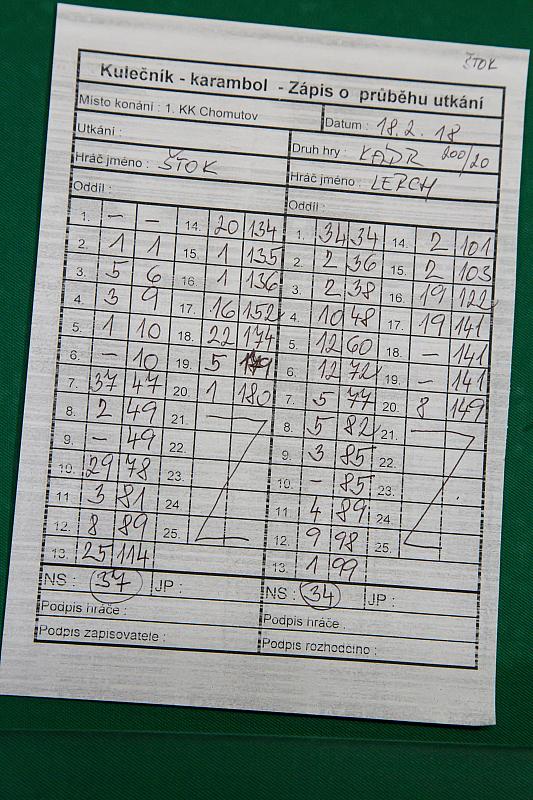 ŠTOK
Kulečník - karambol - Zápis o průběhu utkání
Místo konání : 1. KK Chomutov Datum : 18. 2. 18
Utkání : Druh hry : KADR 200/20
Hráč jméno : ŠTOK Hráč jméno : LERCH
Oddíl : Oddíl :
1. – – 14. 20 134 1. 34 34 14. 2 101
2. 1 1 15. 1 135 2. 2 36 15. 2 103
3. 5 6 16. 1 136 3. 2 38 16. 19 122
4. 3 9 17. 16 152 4. 10 48 17. 19 141
5. 1 10 18. 22 174 5. 12 60 18. – 141
6. – 10 19. 5 179 6. 12 72 19. – 141
7. 37 47 20. 1 180 7. 5 77 20. 8 149
8. 2 49 21. 8. 5 82 21.
9. – 49 22. 9. 3 85 22.
10. 29 78 23. 10. – 85 23.
11 3 81 24. 11 4 89 24.
12. 8 89 25. 12. 9 98 25.
13. 25 114 13. 1 99
NS : 37 JP : NS : 34 JP :
Podpis hráče : Podpis hráče :
Podpis zapisovatele : Podpis rozhodčího :